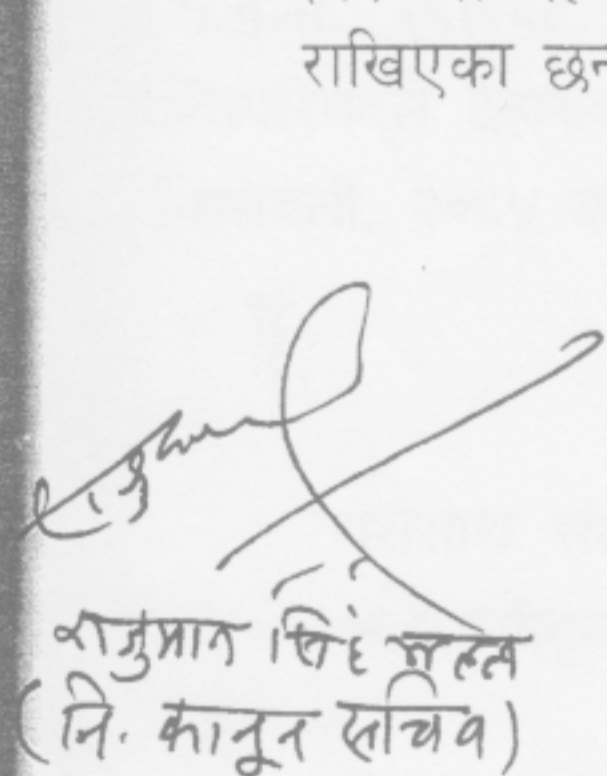 राखिएका छन
राजुमान सिंह मल्ल
(नि. कानून सचिव)